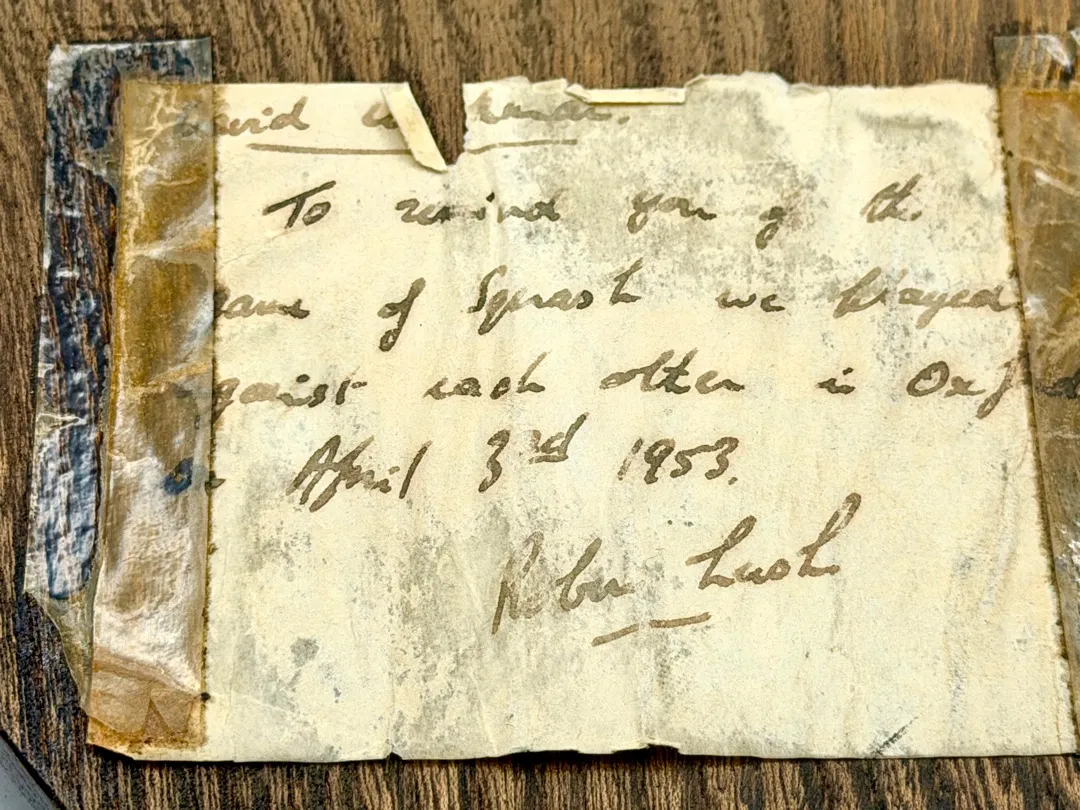 David
To remind you of the
game of Squash we played
against each other in Oxford
On April 3rd 1953.
Robin Lush